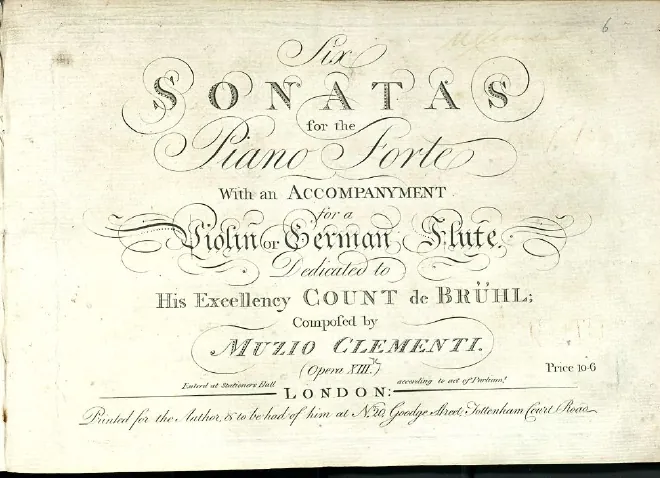 6
Six
SONATAS
for the
Piano Forte
With an ACCOMPANYMENT
for a
Violin or German Flute,
Dedicated to
His Excellency COUNT de BRÜHL;
Compoſed by
MUZIO CLEMENTI.
(Opera XIII.)
Price 10-6
Enterd at Stationers Hall according to act of Parliamt.
LONDON:
Printed for the Author, & to be had of him at No. 20, Goodge Street, Tottenham Court Road